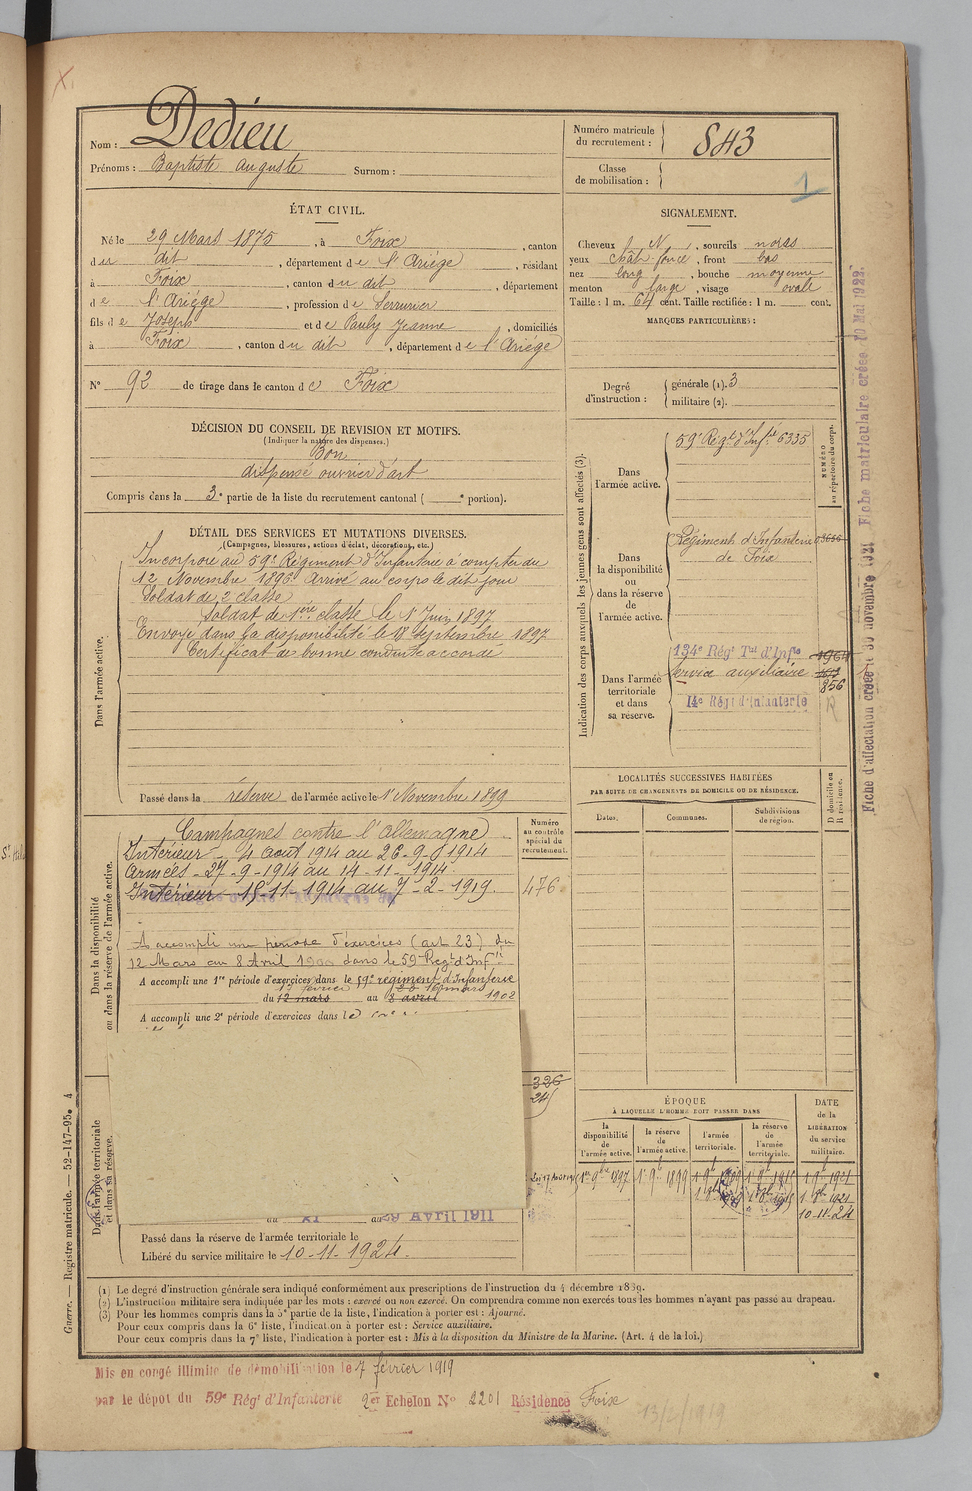 Nom : Dedieu
Prénoms : Baptiste Auguste Surnom :
Numéro matricule du recrutement : 843
Classe de mobilisation :
1
ÉTAT CIVIL.
Né le 29 Mars 1875, à Foix, canton
du dit, département de l'Ariège, résidant
à Foix, canton du dit, département
de l'Ariège, profession de Serrurier
fils de Joseph et de Pauly Jeanne, domiciliés
à Foix, canton du dit, département de l'Ariège
N° 92 de tirage dans le canton de Foix
SIGNALEMENT.
Cheveux N, sourcils noirs
yeux chât. foncé, front bas
nez long, bouche moyenne
menton large, visage ovale
Taille : 1 m. 64 cent. Taille rectifiée : 1 m. cent.
MARQUES PARTICULIÈRES :
Degré d'instruction : générale (1). 3
militaire (2).
DÉCISION DU CONSEIL DE REVISION ET MOTIFS.
(Indiquer la nature des dispenses.)
Bon
dispensé ouvrier d'art
Compris dans la 3e partie de la liste du recrutement cantonal ( e portion).
DÉTAIL DES SERVICES ET MUTATIONS DIVERSES.
(Campagnes, blessures, actions d'éclat, décorations, etc.)
Dans l'armée active.
Incorporé au 59e Régiment d'Infanterie à compter du
12 Novembre 1896 Arrivé au corps le dit jour
Soldat de 2 classe
Soldat de 1ère classe le 1 Juin 1897
Envoyé dans la disponibilité le 18 Septembre 1897
Certificat de bonne conduite accordé
Passé dans la réserve de l'armée active le 1 Novembre 1899
Dans la disponibilité ou dans la réserve de l'armée active.
Campagnes contre l'allemagne
Intérieur - 4 aout 1914 au 26-9-1914
Armées - 27-9-1914 au 14-11-1914
Intérieur - 15-11-1914 au 7-2-1919.
Numéro au contrôle spécial du recrutement.
476
A accompli une période d'exercices (art 23) du
12 Mars au 8 Avril 1900 dans le 59 Regt d'Inf
A accompli une 1re période d'exercices dans le 59e régiment d'Infanterie
du 12 mars au 8 avril 1902
A accompli une 2e période d'exercices dans le
326
Dans l'armée territoriale et dans sa réserve.
au 29 Avril 1911
Passé dans la réserve de l'armée territoriale le
Libéré du service militaire le 10-11-1924.
Indication des corps auxquels les jeunes gens sont affectés (3).
NUMÉRO au répertoire du corps.
Dans l'armée active.
59e Régt d'Infie 6335
Dans la disponibilité ou dans la réserve de l'armée active.
Régiment d'Infanterie de Foix
Dans l'armée territoriale et dans sa réserve.
134e Régt Tal d'Infie
Service auxiliaire
856
14e Régt d'Infanterie
R
LOCALITÉS SUCCESSIVES HABITÉES
PAR SUITE DE CHANGEMENTS DE DOMICILE OU DE RÉSIDENCE.
Dates. Communes. Subdivisions de région. D domicile ou R résidence.
ÉPOQUE
À LAQUELLE L'HOMME DOIT PASSER DANS
la disponibilité de l'armée active. la réserve de l'armée active. l'armée territoriale. la réserve de l'armée territoriale. DATE de la LIBÉRATION du service militaire.
1er 9bre 1897 1 9b 1899
1 9b 1921
10-11-24
(1) Le degré d'instruction générale sera indiqué conformément aux prescriptions de l'instruction du 4 décembre 1889.
(2) L'instruction militaire sera indiquée par les mots : exercé ou non exercé. On comprendra comme non exercés tous les hommes n'ayant pas passé au drapeau.
(3) Pour les hommes compris dans la 5e partie de la liste, l'indication à porter est : Ajourné.
Pour ceux compris dans la 6e liste, l'indication à porter est : Service auxiliaire.
Pour ceux compris dans la 7e liste, l'indication à porter est : Mis à la disposition du Ministre de la Marine. (Art. 4 de la loi.)
Mis en congé illimité de démobilisation le 7 février 1919
par le dépot du 59e Régt d'Infanterie 2er Echelon N° 2201 Résidence Foix
13/2/1919
Guerre. — Registre matricule. — 52-147-95. 4
Fiche d'affectation créée le 30 novembre 1921 Fiche matriculaire créée 10 Mai 1922.